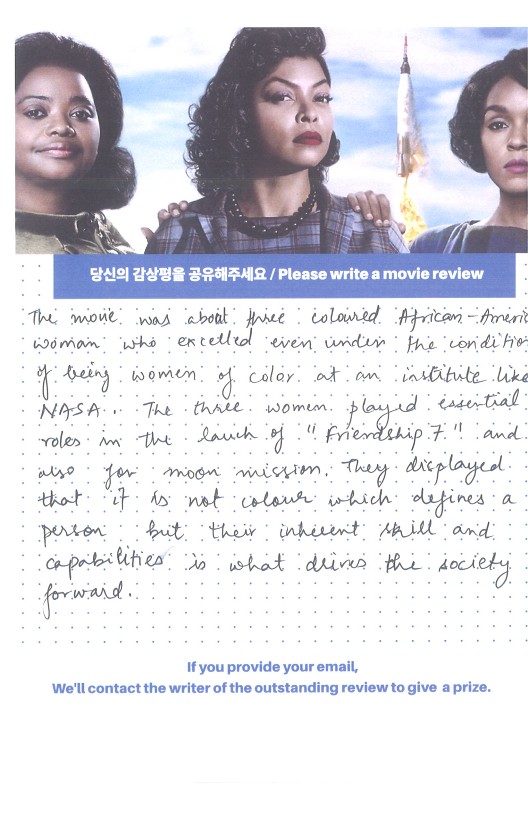 당신의 감상평을 공유해주세요 / Please write a movie review
The movie was about three coloured African-Americ
woman who excelled even under the conditio
of being women of color at an institute like
NASA. The three women played essential
roles in the lauch of "Friendship 7" and
also for moon mission. They displayed
that it is not colour which defines a
person but their inherent skill and
capabilities is what drives the society
forward.
If you provide your email,
We'll contact the writer of the outstanding review to give a prize.